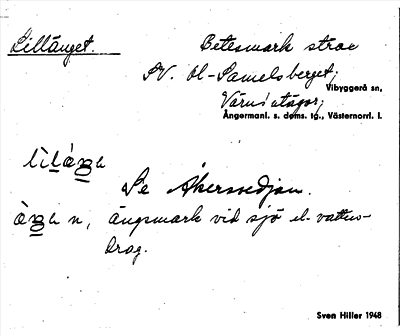 Lillänget. Betesmark strax
SV. Ol-Samelsberget;
Vibyggerå sn,
Ångermanl. s. doms. tg., Västernorrl. l.
Se Åkersvedjan.
n, ängsmark vid sjö el. vatten-
drag.
Sven Hiller 1948